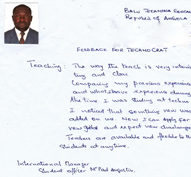 Republic of Angola
FEEDBACK FOR TECHNOCRAFT
Teaching: The way the teach is very
and clear
Company my previous experience
and whatsoever experience during
the time I was study at
I noticed that something new was
added to me. Now I can apply for
new jobs and expect new challenges
Teachers are available and flexible to the
students at anytime.
International Manager
Student officer Mr Paul Augustin.